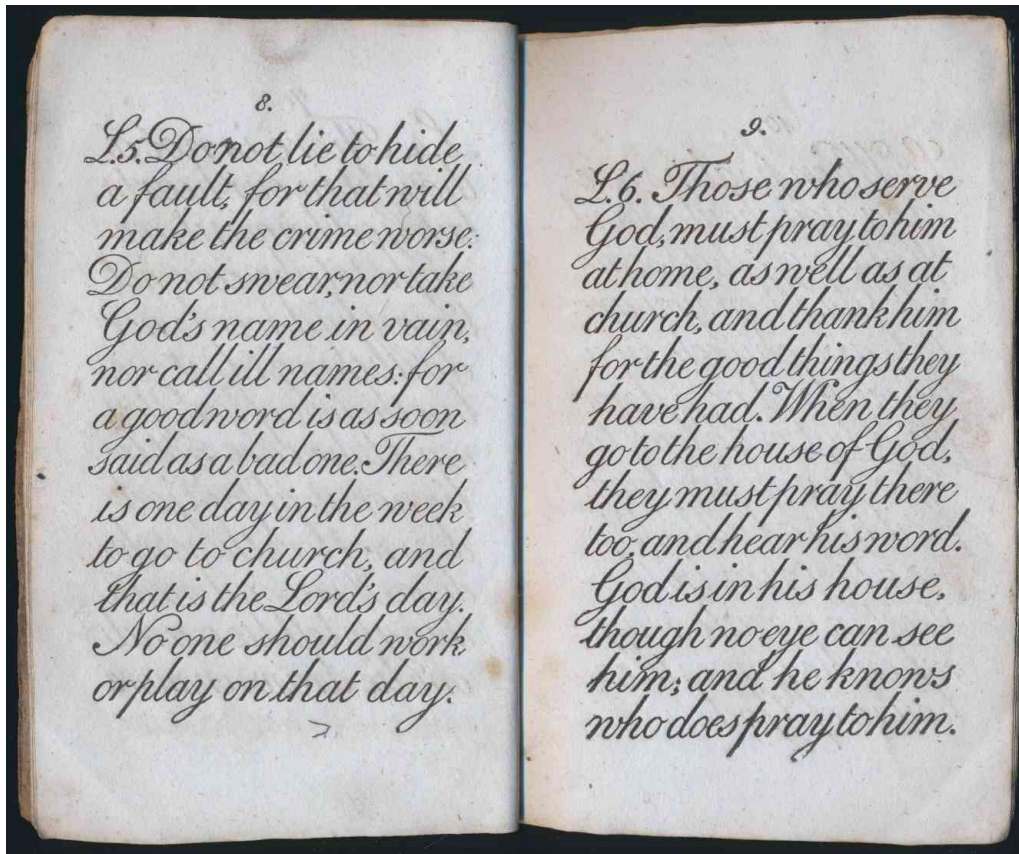 8.
L.5. Do not lie to hide
a fault, for that will
make the crime worse.
Do not swear, nor take
God's name in vain,
nor call ill names: for
a good word is as soon
said as a bad one. There
is one day in the week
to go to church, and
that is the Lord's day.
No one should work
or play on that day.
9.
L.6. Those who serve
God, must pray to him
at home, as well as at
church, and thank him
for the good things they
have had. When they
go to the house of God,
they must pray there
too, and hear his word.
God is in his house,
though no eye can see
him; and he knows
who does pray to him.